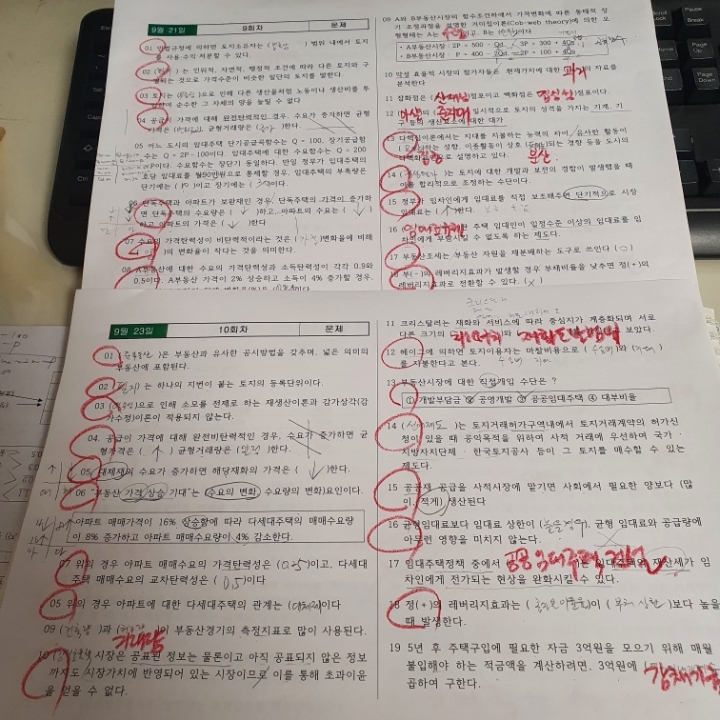 9월 21일 9회차 문제
01 법정규정에 의하면 토지소유자는 ( ) 범위 내에서 토지
를 사용·수익·처분할 수 있다.
02 ( )는 인위적, 자연적, 행정적 조건에 따라 다른 토지와 구
별되는 것으로 가격수준이 비슷한 일단의 토지를 말한다.
03 토지는 ( )으로 인해 다른 생산물처럼 노동이나 생산비를 투
입하여 순수한 그 자체의 양을 늘릴 수 없다
04 공급이 가격에 대해 완전탄력적인 경우, 수요가 증가하면 균형
가격은 ( ), 균형거래량은 ( )한다.
05 어느 도시의 임대주택 단기공급곡선은 Q = 100, 장기공급곡
선은 Q = 2P-100이다. 임대주택에 대한 수요함수는 Q = 200
-P이다. 수요함수는 장단기 동일하다. 만일 정부가 임대주택의
호당 임대료를 월90만원으로 통제할 경우, 임대주택의 부족량은
단기에는 ( 10 )이고 장기에는 ( )이다.
06 단독주택과 아파트가 보완재인 경우, 단독주택의 가격이 증가하
면 단독주택의 수요량은 ( ↓ )하고 아파트의 수요는 ( ↓ )
하고 아파트의 가격은 ( ↓ )한다.
07 수요의 가격탄력성이 비탄력적이라는 것은 (가격)변화율에 비해
( )의 변화율이 작다는 것을 의미한다.
08 A부동산에 대한 수요의 가격탄력성과 소득탄력성이 각각 0.9와
0.5이다. A부동산 가격이 2% 상승하고 소득이 4% 증가할 경우,
09 A와 B부동산시장의 함수조건하에서 가격변화에 따른 동태적 장
기 조정과정을 설명한 거미집이론(Cob-web theory)에 의한 모
형형태는 A는 수렴형, B는 순환형이다
· A부동산시장 : 2P = 500 - Qd, 3P = 300 + 4Qs
· B부동산시장 : P = 400 - 2Qd, 2P = 100 + 4Qs
10 약성 효율적 시장의 평가자들은 현재가치에 대한 과거의 자료를
분석한다
11 잡화점은 (산재성)점포이고 백화점은 집심성점포이다.
12 마샬의 준지대 일시적으로 토지의 성격을 가지는 기계, 기
구 등의 생산요소에 대한 대가
13 다핵심이론에서는 지대를 지불하는 능력의 차이, 유사한 활동이
( 집중 )하는 성향, 이종활동이 상호 (분산)되는 경향 등을 도시의
다핵화 으로 설명하고 있다.
14 ( )는 토지에 대한 개발과 보전의 경합이 발생했을 때
이를 합리적으로 조정하는 수단이다.
15 정부가 임차인에게 임대료를 직접 보조해주면 단기적으로 시장
임대료는 ( ↑ )한다.
16 임대료규제 주택 임대인이 일정수준 이상의 임대료를 임
차인에게 부담시킬 수 없도록 하는 제도다.
17 부동산조세는 부동산 자원을 재분배하는 도구로 쓰인다 (O)
18 부(-)의 레버리지효과가 발생할 경우 부채비율을 낮추면 정(+)의
레버리지효과로 전환할 수 있다. (X)
9월 23일 10회차 문제
01 (준부동산)은 부동산과 유사한 공시방법을 갖추며, 넓은 의미의
부동산에 포함된다.
02 (필지)는 하나의 지번이 붙는 토지의 등록단위이다.
03 ( )으로 인해 소모를 전제로 하는 재생산이론과 감가상각(감
가수정)이론이 적용되지 않는다.
04 공급이 가격에 대해 완전비탄력적인 경우, 수요가 증가하면 균
형가격은 ( ↑ ) 균형거래량은 (일정)한다.
05 대체재의 수요가 증가하면 해당재화의 가격은 ( ↓ )한다.
06 “부동산 가격 상승 기대”는 (수요의 변화, 수요량의 변화)요인이다.
아파트 매매가격이 16% 상승함에 따라 다세대주택의 매매수요량
이 8% 증가하고 아파트 매매수요량이 4% 감소한다.
07 위의 경우 아파트 매매수요의 가격탄력성은 (0.25)이고, 다세대
주택 매매수요의 교차탄력성은 ( 0.5 )이다
05 위의 경우 아파트에 대한 다세대주택의 관계는 (대체재)이다
09 (건축량)과 ( )이 부동산경기의 측정지표로 많이 사용된다.
거래량
10 ( ) 시장은 공표된 정보는 물론이고 아직 공표되지 않은 정보
까지도 시장가치에 반영되어 있는 시장이므로 이를 통해 초과이윤
을 얻을 수 없다.
11 크리스탈러는 재화와 서비스에 따라 중심지가 계층화되며 서로
다른 크기의 을 보았다.
12 헤이그에 의하면 토지이용자는 마찰비용으로 (수송비)와 (지대)
를 지불한다고 본다.
13 부동산시장에 대한 직접개입 수단은 ?
① 개발부담금 ② 공영개발 ③ 공공임대주택 ④ 대부비율
14 (선매제도)는 토지거래허가구역내에서 토지거래계약의 허가신
청이 있을 때 공익목적을 위하여 사적 거래에 우선하여 국가 ·
지방자치단체 · 한국토지공사 등이 그 토지를 매수할 수 있는
제도다.
15 공공재 공급을 사적시장에 맡기면 사회에서 필요한 양보다 (많
이, 적게) 생산된다
16 균형임대료보다 임대료 상한이 (높을경우), 균형 임대료와 공급량에
아무런 영향을 미치지 않는다.
17 임대주택정책 중에서 공공임대주택건설은 임대주택의 재산세가 임
차인에게 전가되는 현상을 완화시킬 수 있다.
18 정(+)의 레버리지효과는 ( )이 ( )보다 높을
때 발생한다.
19 5년 후 주택구입에 필요한 자금 3억원을 모으기 위해 매월
불입해야 하는 적금액을 계산하려면, 3억원에 (감채기금
곱하여 구한다.